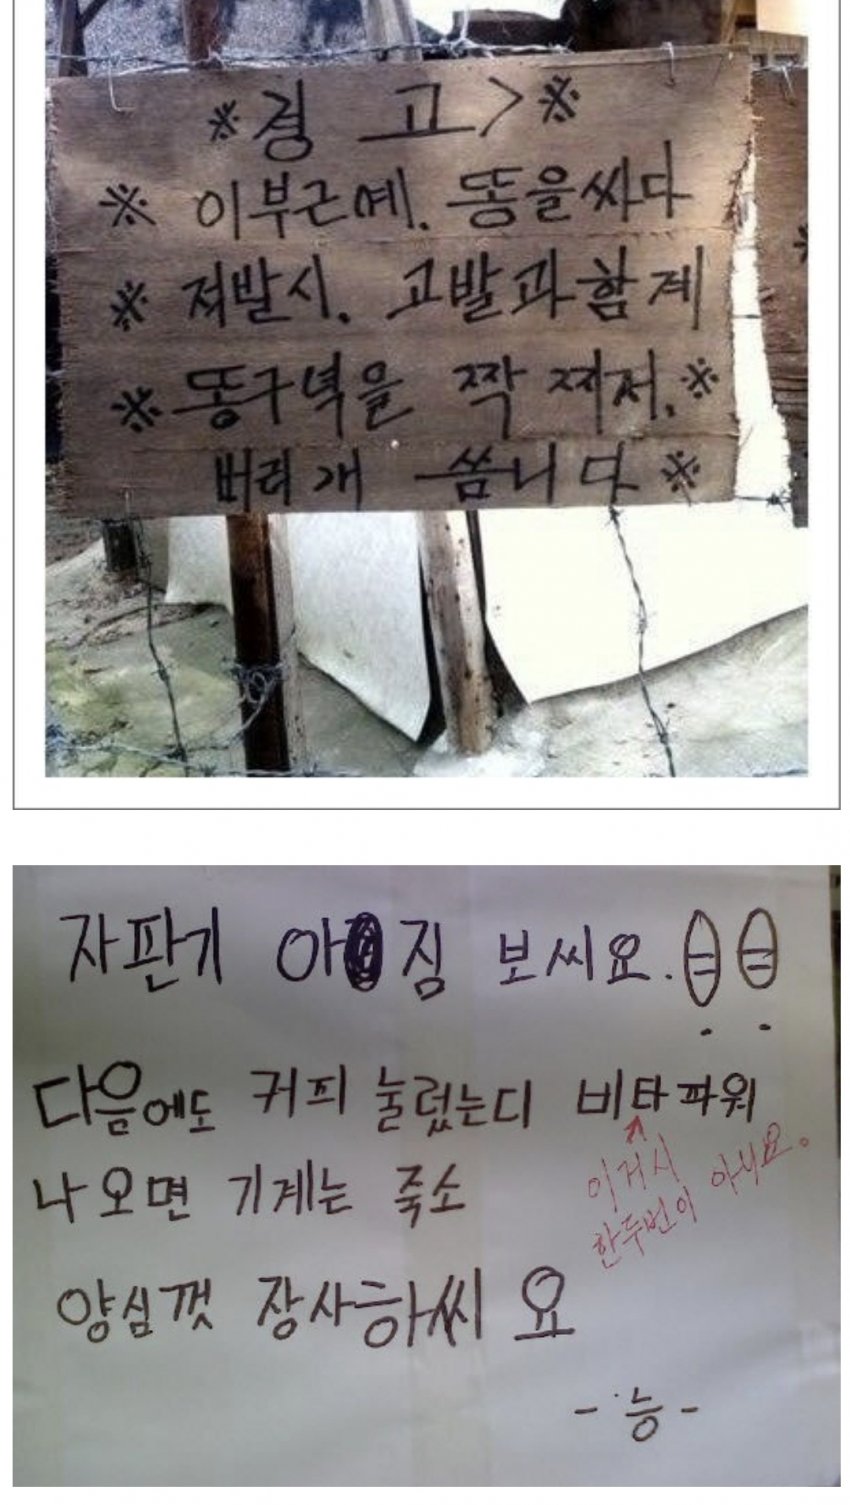 ※경 고>※
※ 이부근에. 똥을싸다
※ 저발시. 고발과함게
※ 똥구녁을 짝 찌저.※
버리개 씀니다 ※
자판기 아짐 보씨요.
다음에도 커피 눌렀는디 비타파워
이거시
한두번이 아니요。
나오면 기계는 죽소
양심껏 장사하씨요
-능-